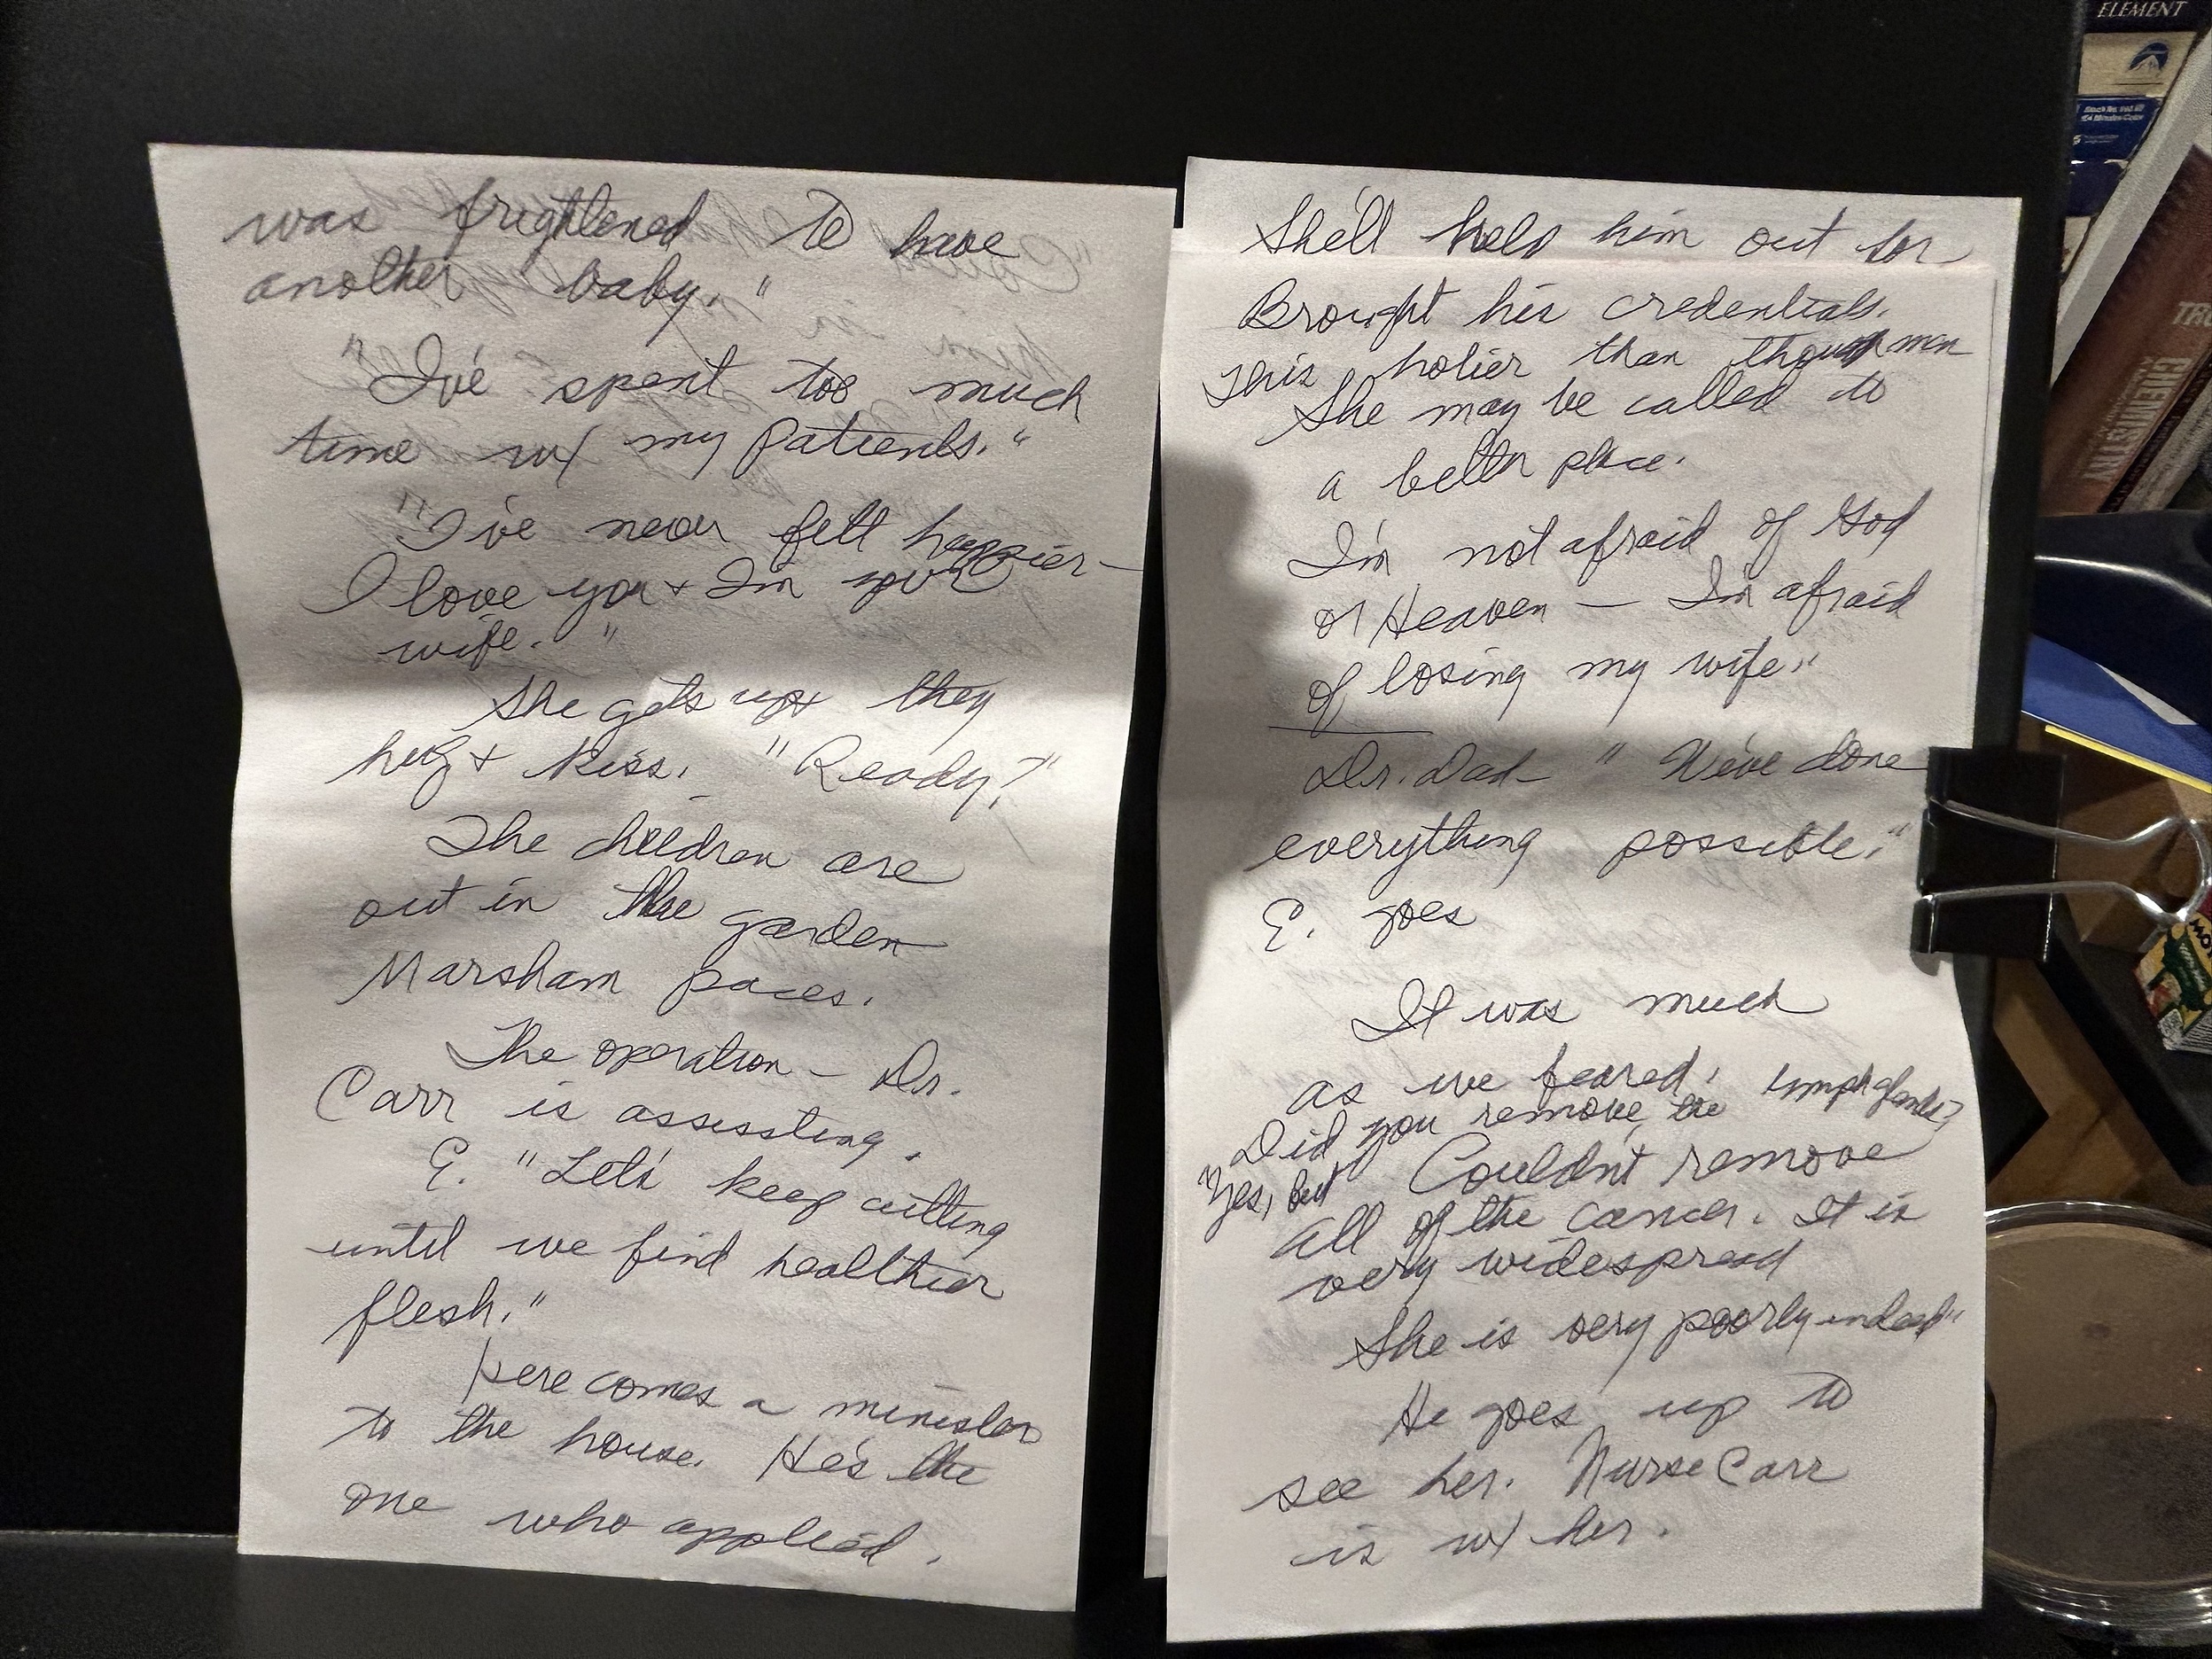 was frightened to have
another baby."
"I've spent too much
time w/ my patients."
"I've never felt happier—
I love you + I'm your
wife."
She gets up + they
hug + kiss. "Ready?"
The children are
out in the garden
Marsham paces.
The operation – Dr.
Carr is assissting.
E. "Let's keep cutting
until we find healthier
flesh."
Here comes a minister
to the house. He's the
one who applied.
She'll help him out for
Brought his credentials.
This holier than thou man
She may be called to
a better place.
I'm not afraid of God
or Heaven — I'm afraid
of losing my wife."
Dr. Dad "We've done
everything possible."
E. goes
It was much
as we feared.
Did you remove the lymph glands?
"Yes, but Couldn't remove
all of the cancer. It is
very widespread
She is very poorly indeed"
He goes up to
see her. Nurse Carr
is w/ her.
ELEMENT
CHEMISTRY